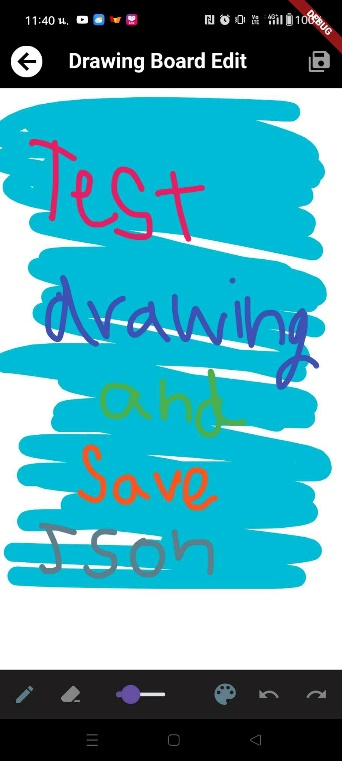 11:40 น.
DEBUG
Drawing Board Edit
Test
drawing
and
Save
Json